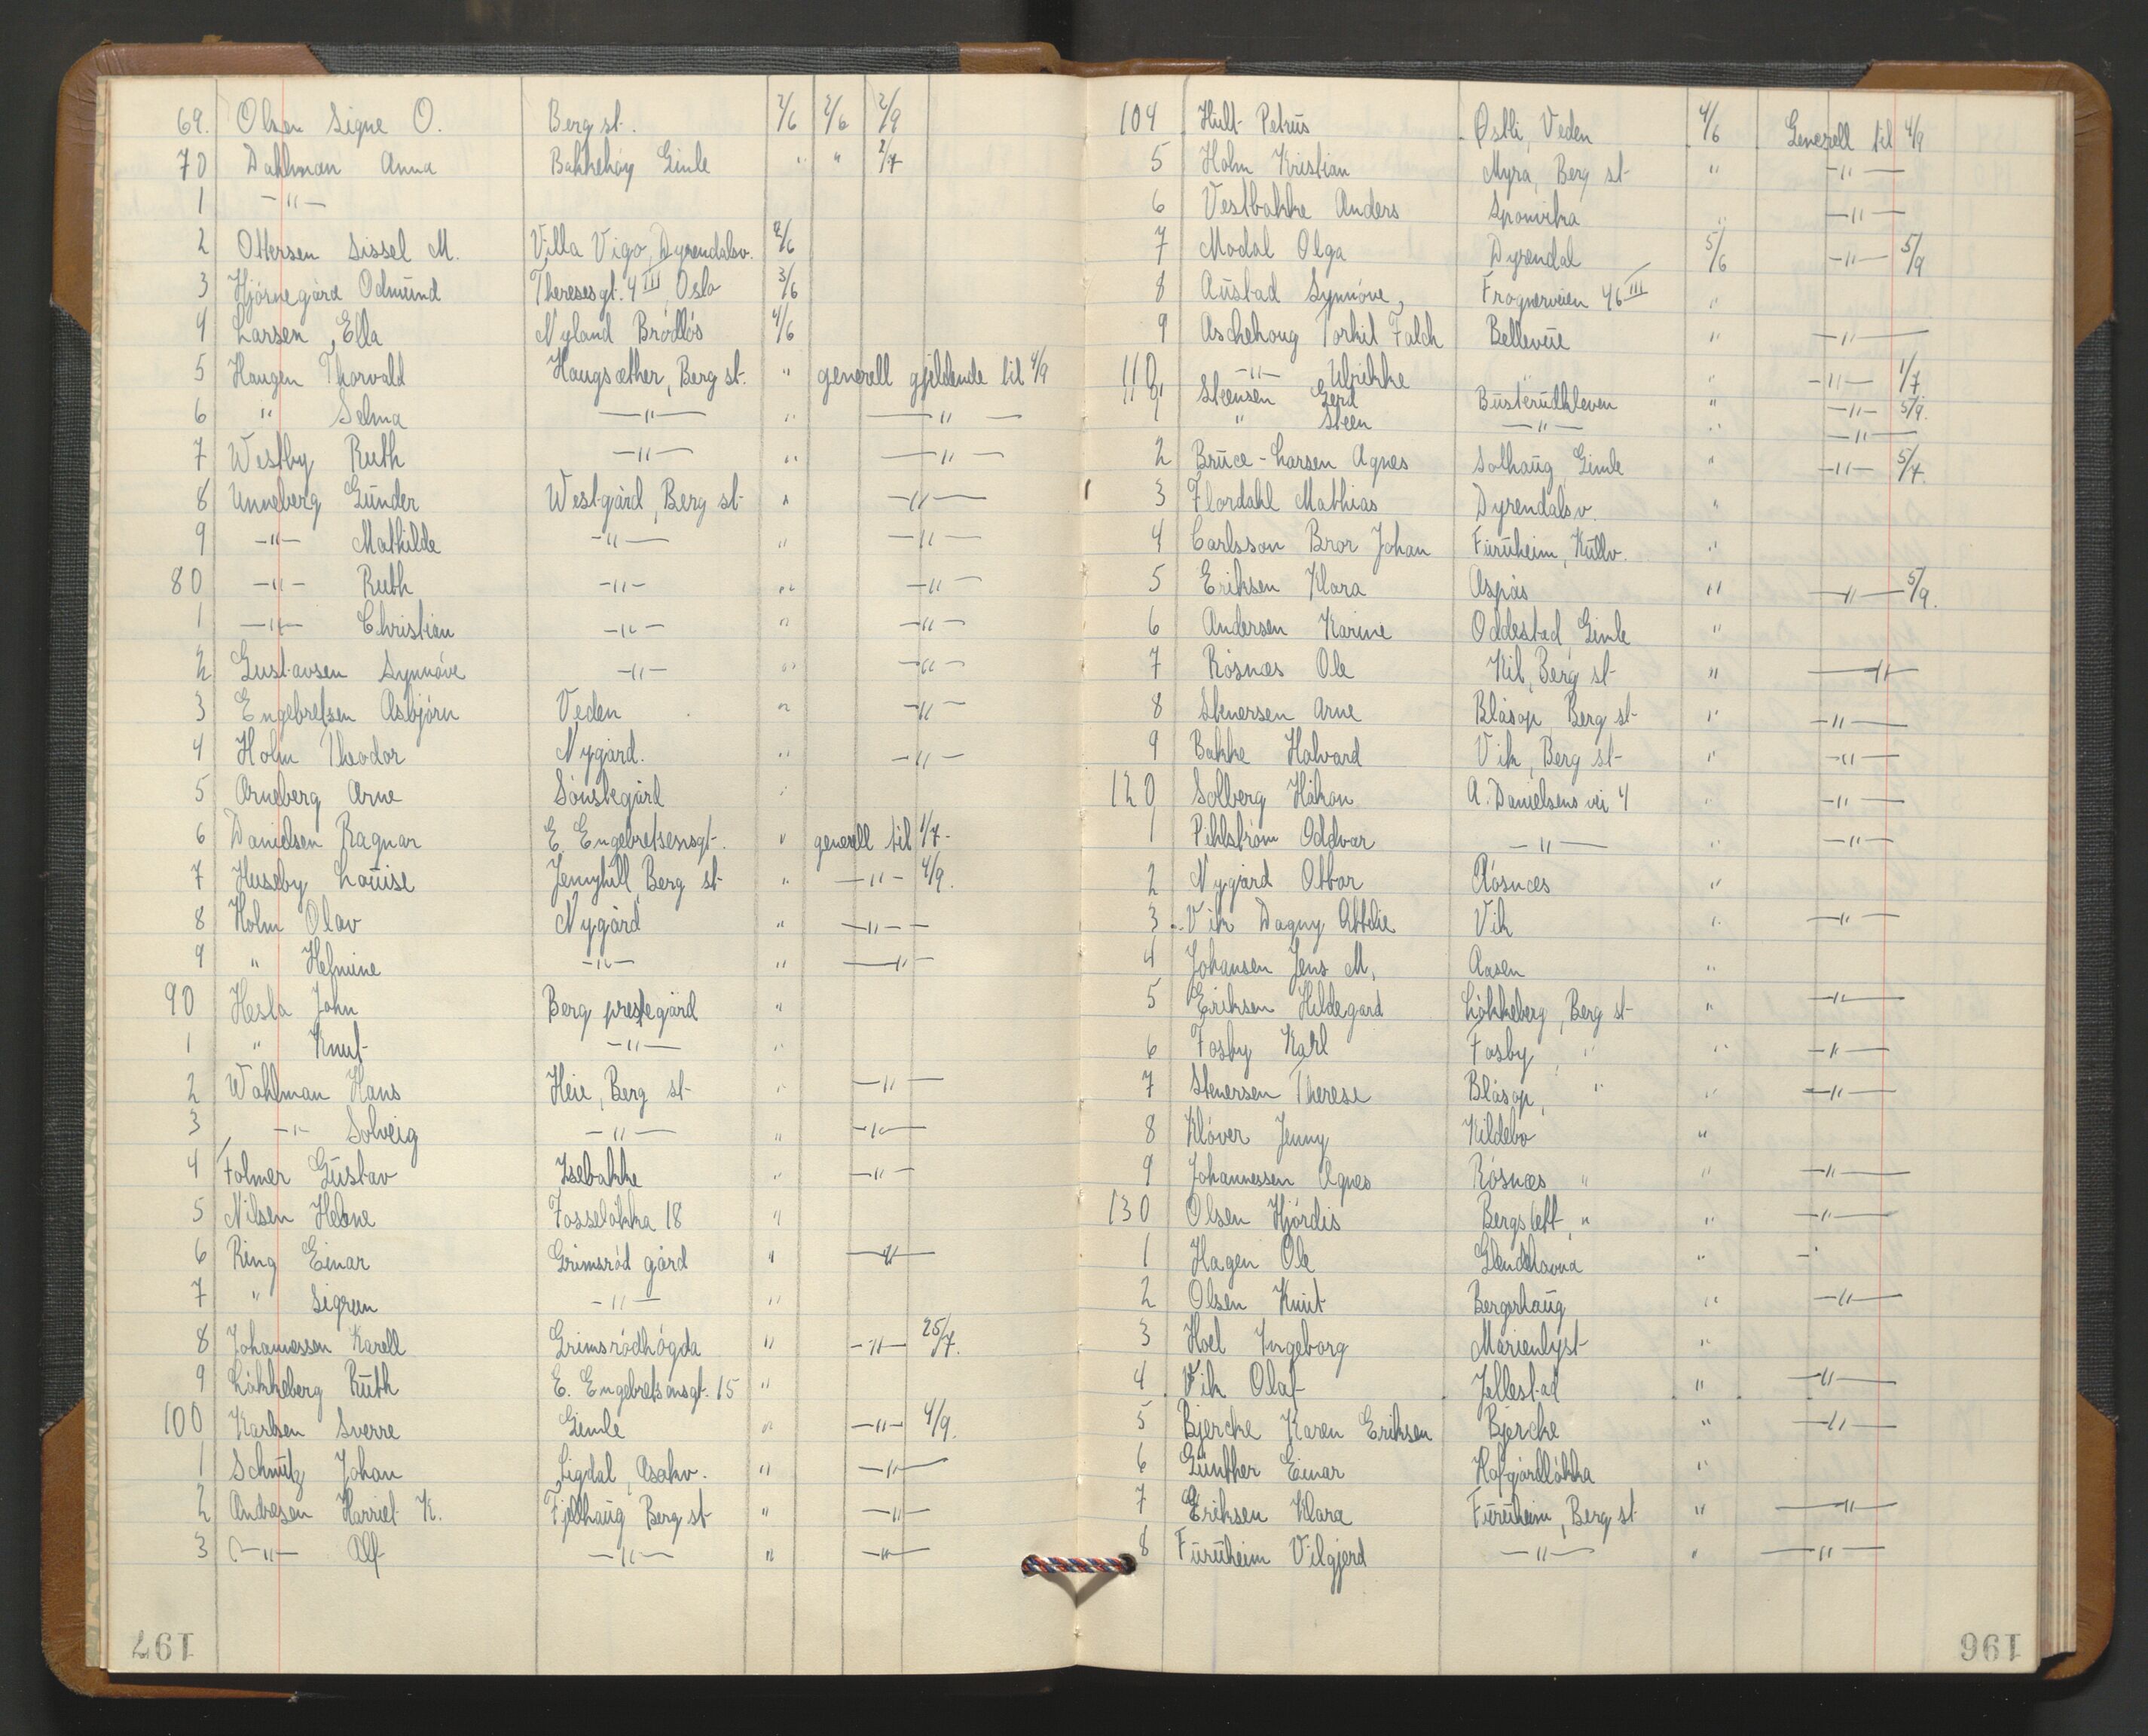 69. Olsen Signe O. Berg st. 2/6 2/6 2/9
70 Dahlman Anna Bakkehøy Gimle " " 2/7
1 -"-
2 Ottersen Sissel M. Villa Vigo, Dyrendalsv. 2/6
3 Hjørnegård Odmund Theresesgt. 4 III, Oslo 3/6
4 Larsen, Ella Nyland Brödlös 4/6
5 Haugen Thorvald Haugsæther, Berg st. " generell gjeldende til 4/9
6 " Selma -"- " -"-
7 Westby Ruth -"- " -"-
8 Unneberg Gunder Westgård, Berg st " -"-
9 -"- Mathilde -"- " -"-
80 -"- Ruth -"- " -"-
1 -"- Christian -"- " -"-
2 Gustavsen Synnöve -"- " -"-
3 Engebretsen Asbjørn Veden " -"-
4 Holm Theodor Nygård. " -"-
5 Arneberg Arne Sönstegård "
6 Danielsen Ragnar E. Engebretsensgt. " generell til 1/7-
7 Huseby Louise Jennyhill, Berg st " -"- 4/9.
8 Holm Olav Nygård " -"-
9 " Helmine -"- " -"-
90 Hesla John Berg prestegård "
1 " Knut -"- "
2 Wahlman Hans Heie, Berg st " -"-
3 -"- Solveig -"- " -"-
4 Folmer Gustav Isebakke " -"-
5 Nilsen Helene Fosselökka 18 "
6 Ring Einar Grimsröd gård " -"-
7 " Sigrun -"- "
8 Johannessen Karell Grimsrödhögda " -"- 25/7.
9 Lökkeberg Ruth E. Engebretsensgt. 15 "
100 Karlsen Sverre Gimle " -"- 4/9.
1 Schultz Johan Ligdal, Asakv. " -"-
2 Andresen Harriet K. Fjellhaug Berg st " -"-
3 -"- Alf -"- " -"-
197
104 Hult Petrus Østli, Veden 4/6 Generell til 4/9
5 Holm Kristian Myra, Berg st " -"-
6 Vestbakke Anders Sponvika " -"-
7 Modal Olga Dyrendal 5/6 -"- 5/9
8 Austad Synnöve, Frognerveien 46 III "
9 Aschehoug Torkil Falch Bellevue " -"-
110 -"- Ulrikke " " -"- 1/7
110 Steensen Gerd Busterudkleven " -"- 5/9.
1 " Steen -"- " -"-
2 Bruce-Larsen Agnes Solhaug, Gimle " -"- 5/7.
3 Flordahl Mathias Dyrendalsv. "
4 Carlsson Bror Johan Furuheim, Kullv. "
5 Eriksen Klara Aspås " -"- 5/9.
6 Andersen Karine Oddestad Gimle "
7 Rösnæs Ole Kil, Berg st " -"-
8 Stenersen Arne Blåsop Berg st " -"-
9 Bakke Halvard Vik, Berg st " -"-
120 Solberg Håkon A. Danielsens vei 4 " -"-
1 Pihlström Oddvar -"- " -"-
2 Nygård Ottar Rösnæs "
3 Vik Dagny Attelie Vik " -"-
4 Johansen Jens M. Aasen "
5 Eriksen Hildegard Lökkeberg, Berg st " -"-
6 Fosby Karl Fosby, " " -"-
7 Stenersen Therese Blåsop, " " -"-
8 Klöver Jenny Kildebo "
9 Johannessen Agnes Rösnæs " " -"-
130 Olsen Hjördis Bergslett, " " -"-
1 Hagen Ole "
2 Olsen Knut Bergerhaug " -"-
3 Hoel Ingeborg Marienlyst "
4 Vik Olaf Jellestad " -"-
5 Bjercke Karen Eriksen Bjercke " -"-
6 Günther Einar Hofgårdlökka "
7 Eriksen Klara Furuheim, Berg st " -"-
8 Furuheim Vilgjerd -"- " -"-
196